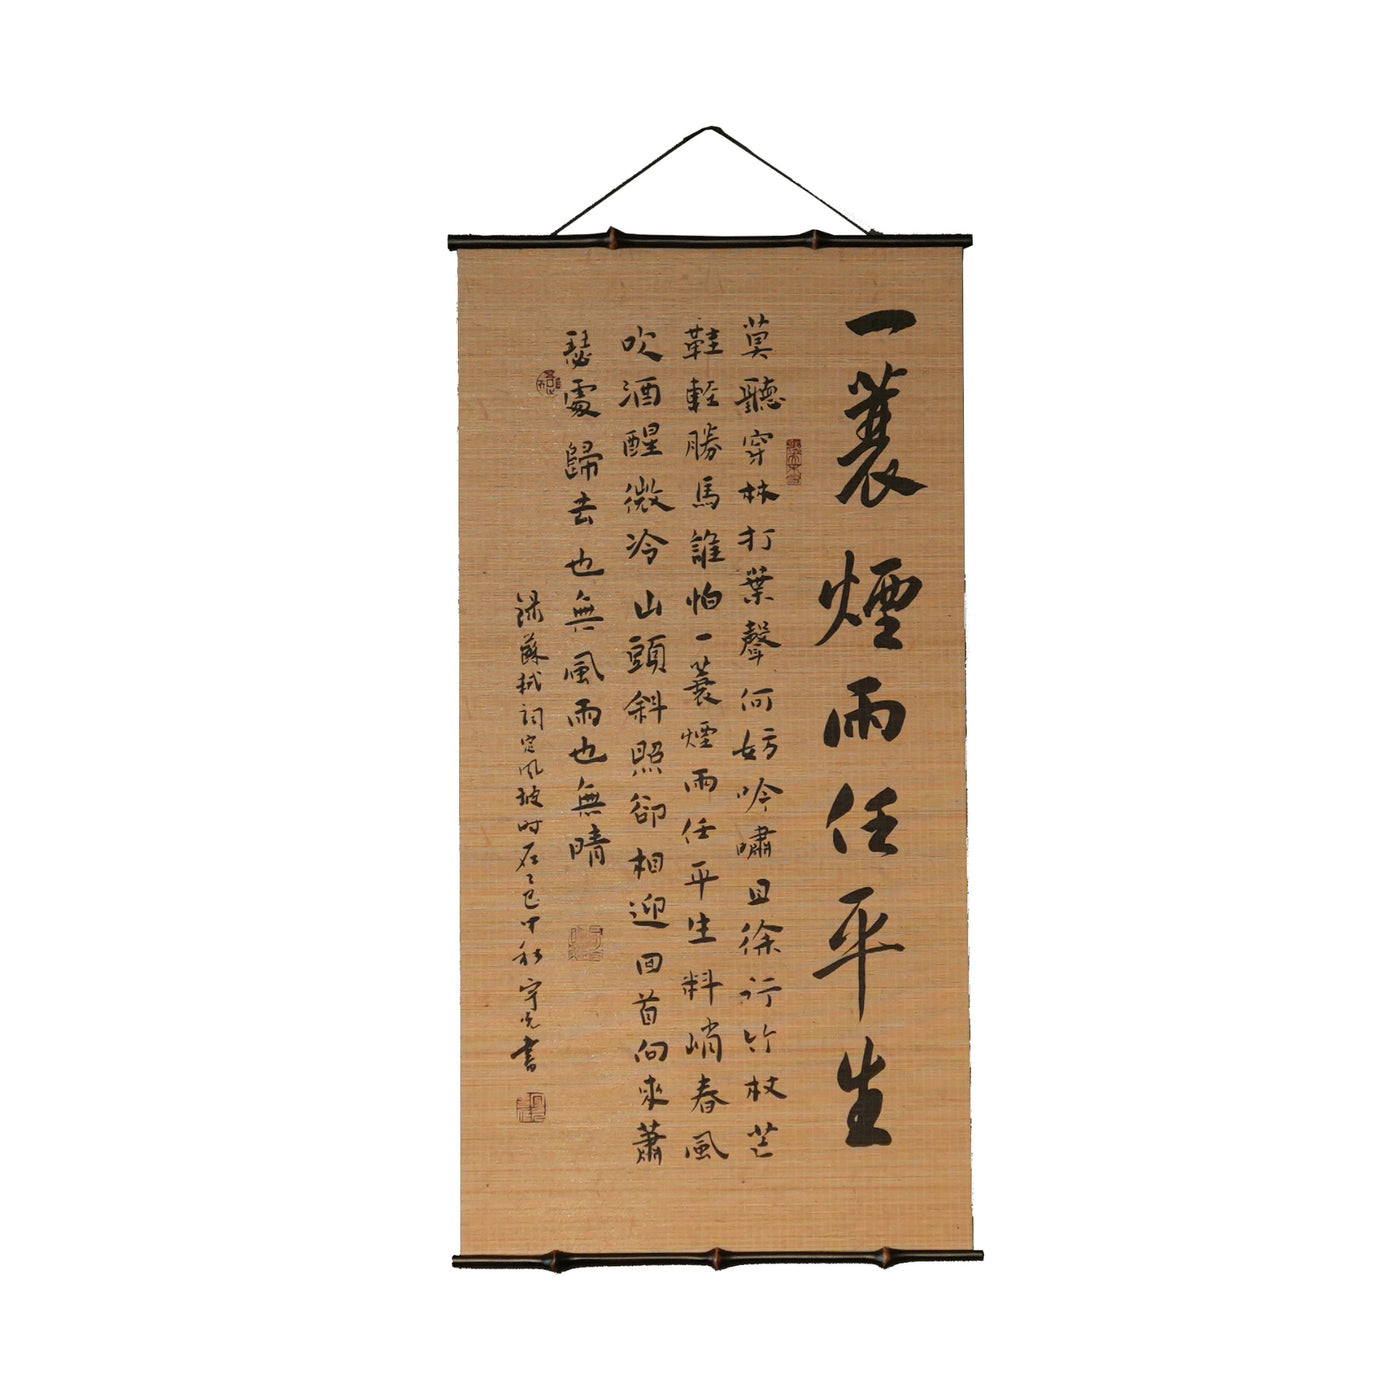 一蓑煙雨任平生
莫聽穿林打葉聲何妨吟嘯且徐行竹杖芒
鞋輕勝馬誰怕一蓑煙雨任平生料峭春風
吹酒醒微冷山頭斜照卻相迎回首向來蕭
瑟處歸去也無風雨也無晴
錄蘇軾詞定風波時在乙巳中秋宇光書